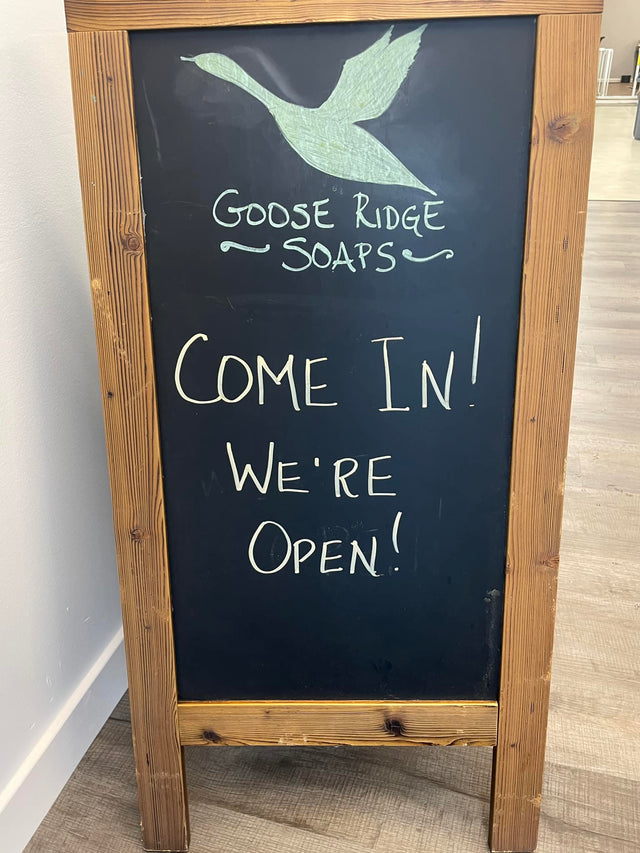 GOOSE RIDGE
SOAPS
COME IN!
WE'RE
OPEN!